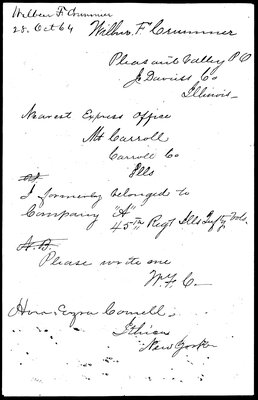 Wilber F Crummer
28. Oct 64
Wilber F Crummer
Pleasant Valley P O
Jo Daviess Co
Illinois
Nearest Express Office
Mt Carroll
Carroll Co
Ills
I formerly belonged to
Company "A"
45th Regt Ills Infty Vols.
N.B.
Please write one
W. F. C.
Hon. Ezra Cornell,
Ithica
New York